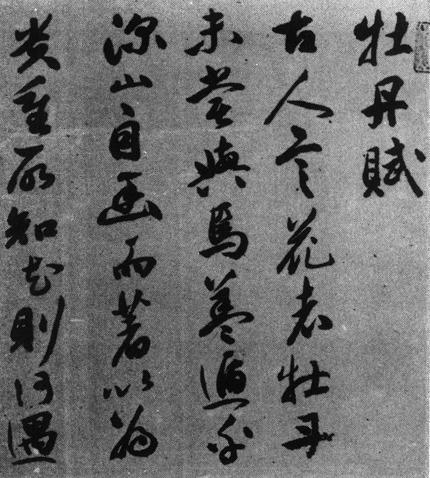 牡丹賦
古人言花者牡丹
未嘗與焉蓋遁乎
深山自幽而著以為
貴重所知花則何遇